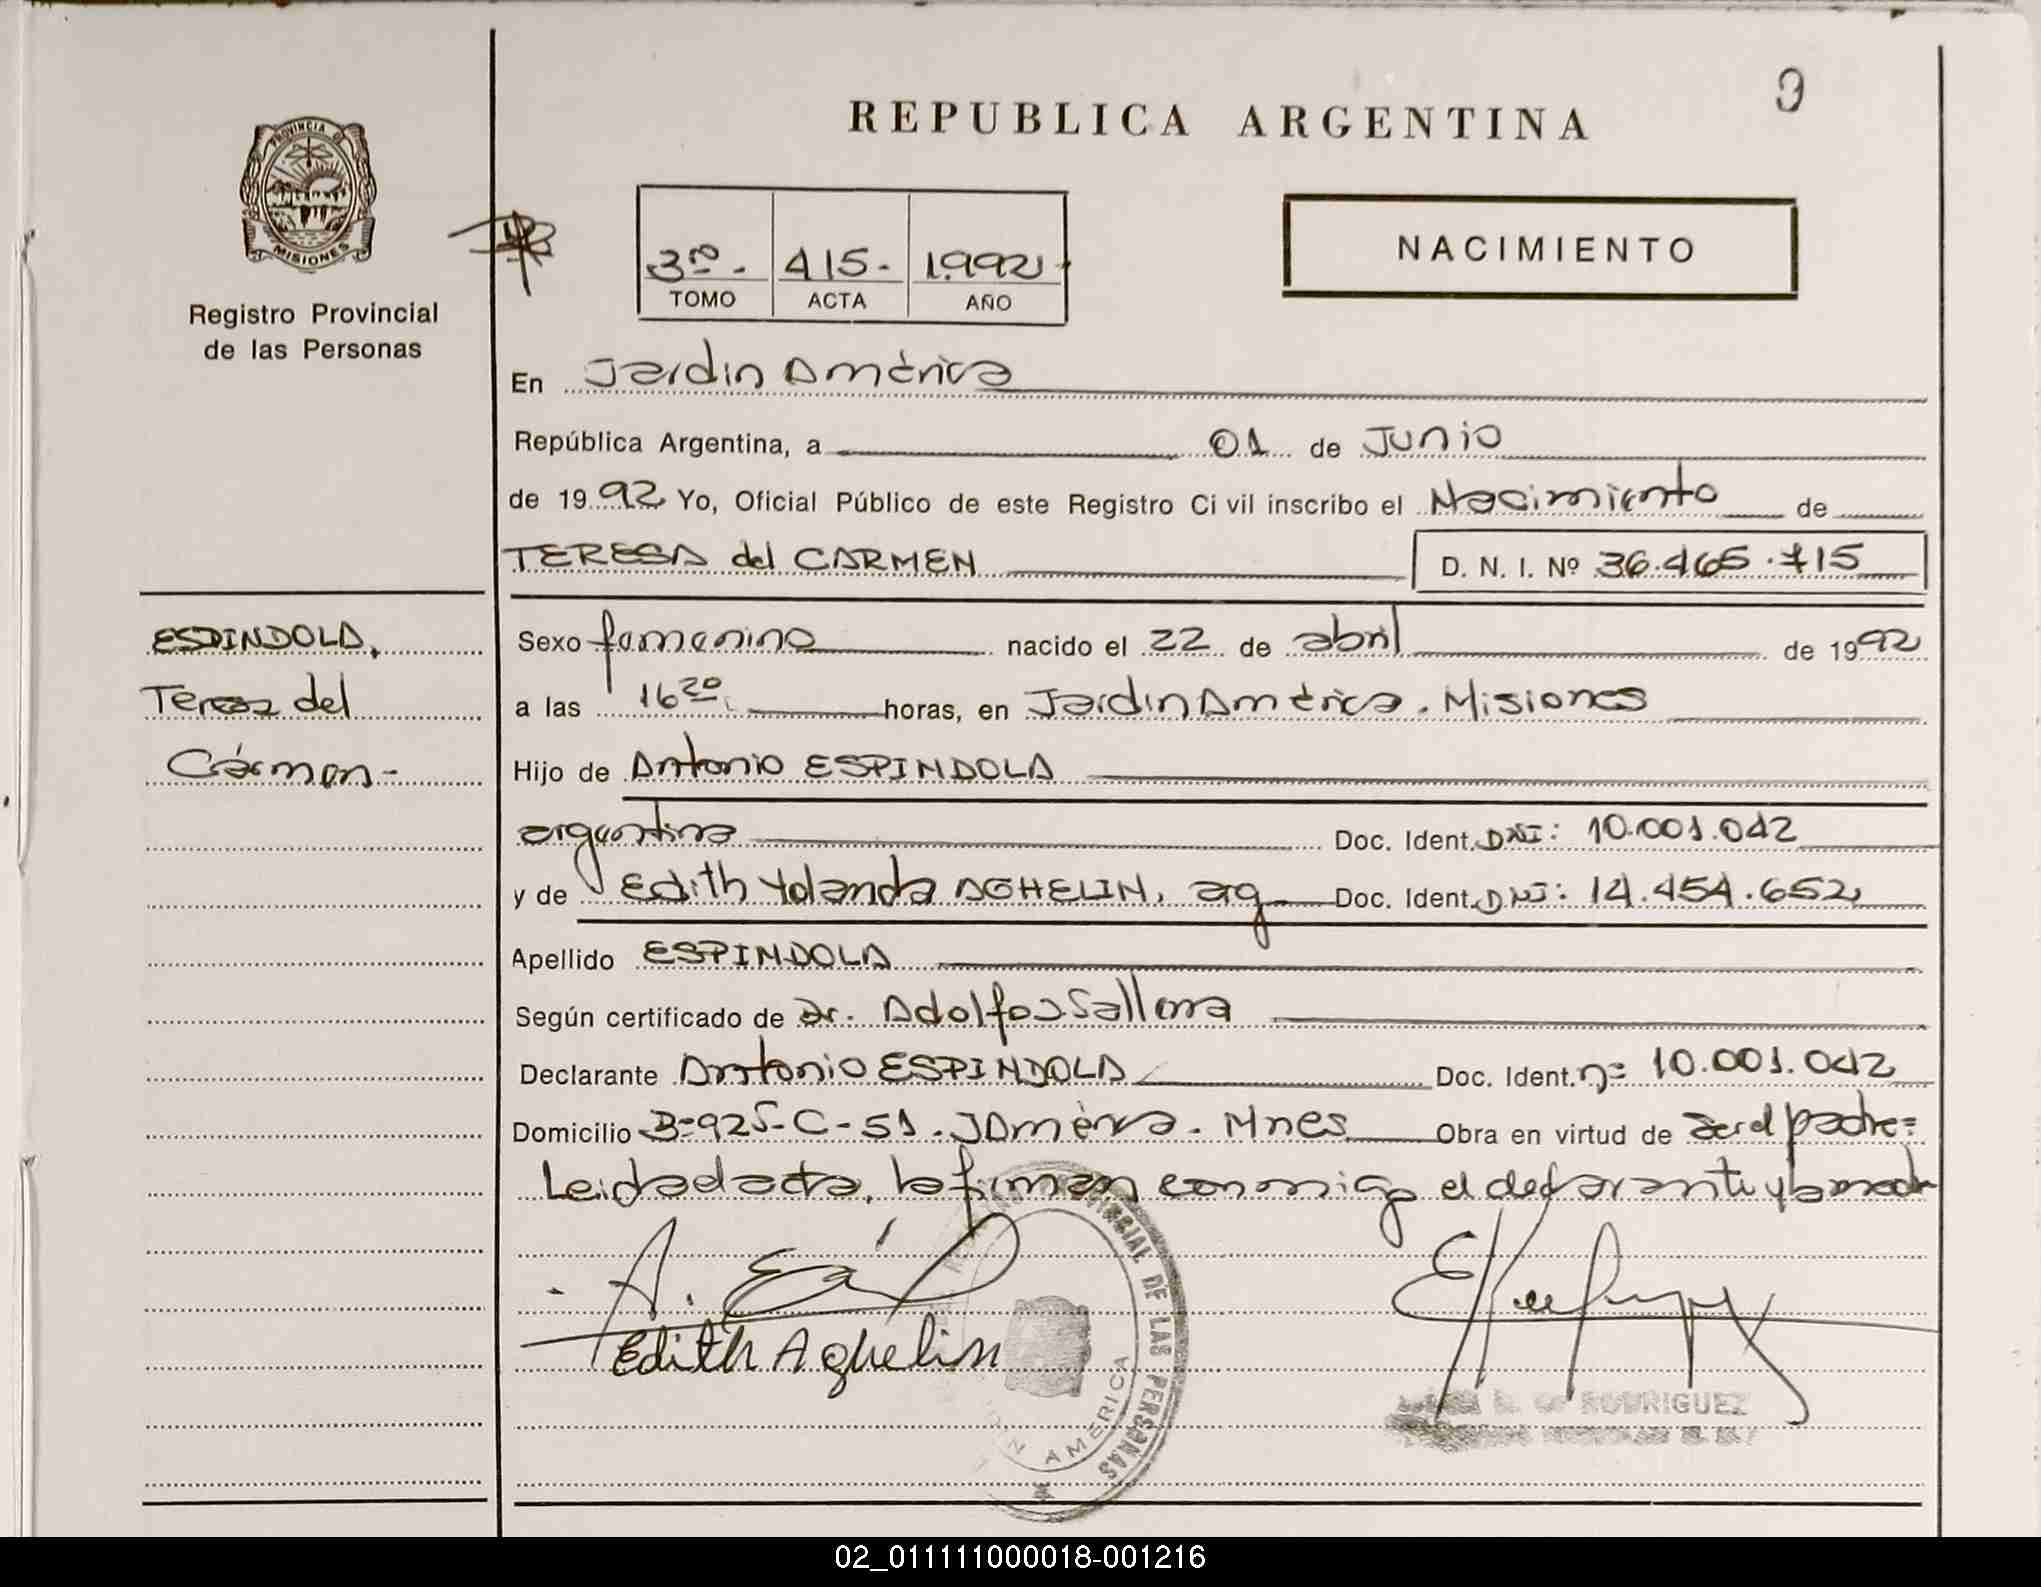 9
REPUBLICA ARGENTINA
PROVINCIA DE
MISIONES
Registro Provincial
de las Personas
3ro-. 415- 1.992
TOMO ACTA AÑO
NACIMIENTO
En Jardin América
República Argentina, a 01 de Junio
de 1992 Yo, Oficial Público de este Registro Civil inscribo el Nacimiento de
TERESA del CARMEN D. N. I. Nº 36.465.715
ESPINDOLA,
Teresa del
Cármen-
Sexo femenino nacido el 22 de abril de 1992
a las 16 20 horas, en Jardin América. Misiones
Hijo de Antonio ESPINDOLA
argentina Doc. Ident. DNI: 10.001.042
y de Edith Yolanda AGHELIN, arg Doc. Ident. DNI: 14.454.652
Apellido ESPINDOLA
Según certificado de Dr. Adolfo
Declarante Antonio ESPINDOLA Doc. Ident. n= 10.001.042
Domicilio B=925-C-51. JAmérica. Mnes Obra en virtud de ser el padre=
Leida el acta, la firman conmigo el declarante y la madre
A.
Edith Aghelin
PROVINCIAL DE LAS PERSONAS
AMERICA
RODRIGUEZ
02_011111000018-001216